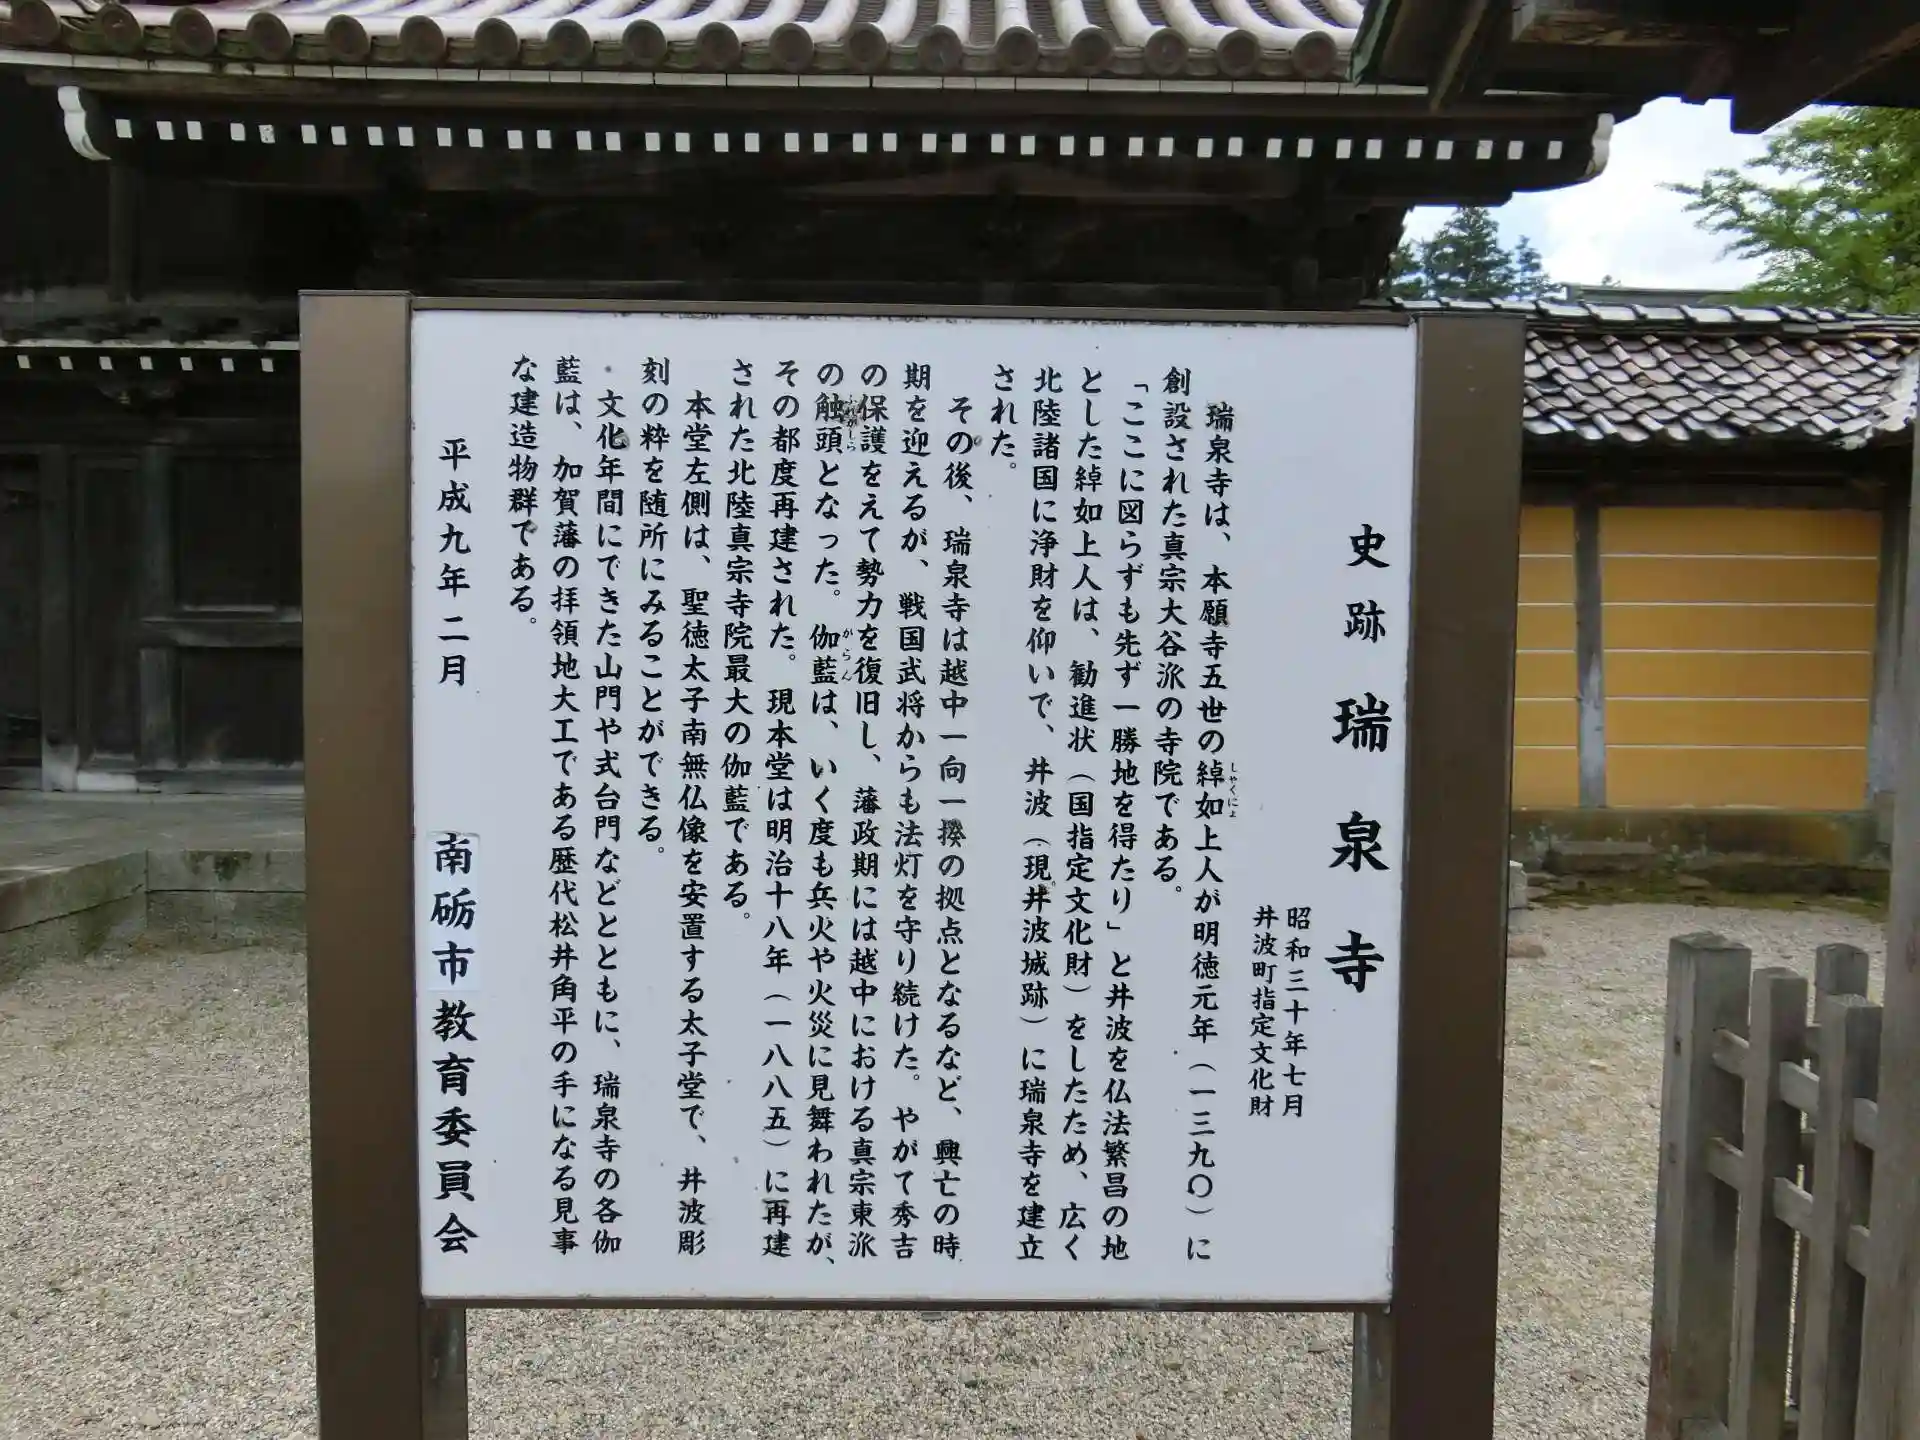 史跡 瑞泉寺
昭和三十年七月
井波町指定文化財
瑞泉寺は、本願寺五世の綽如上人が明徳元年（一三九〇）に
しゃくにょ
創設された真宗大谷派の寺院である。
「ここに図らずも先ず一勝地を得たり」と井波を仏法繁昌の地
とした綽如上人は、勧進状（国指定文化財）をしたため、広く
北陸諸国に浄財を仰いで、井波（現井波城跡）に瑞泉寺を建立
された。
その後、瑞泉寺は越中一向一揆の拠点となるなど、興亡の時
期を迎えるが、戦国武将からも法灯を守り続けた。やがて秀吉
の保護をえて勢力を復旧し、藩政期には越中における真宗東派
の触頭となった。伽藍は、いく度も兵火や火災に見舞われたが、
ふれがしら
がらん
その都度再建された。現本堂は明治十八年（一八八五）に再建
された北陸真宗寺院最大の伽藍である。
本堂左側は、聖徳太子南無仏像を安置する太子堂で、井波彫
刻の粋を随所にみることができる。
文化年間にできた山門や式台門などとともに、瑞泉寺の各伽
藍は、加賀藩の拝領地大工である歴代松井角平の手になる見事
な建造物群である。
平成九年二月
南砺市教育委員会